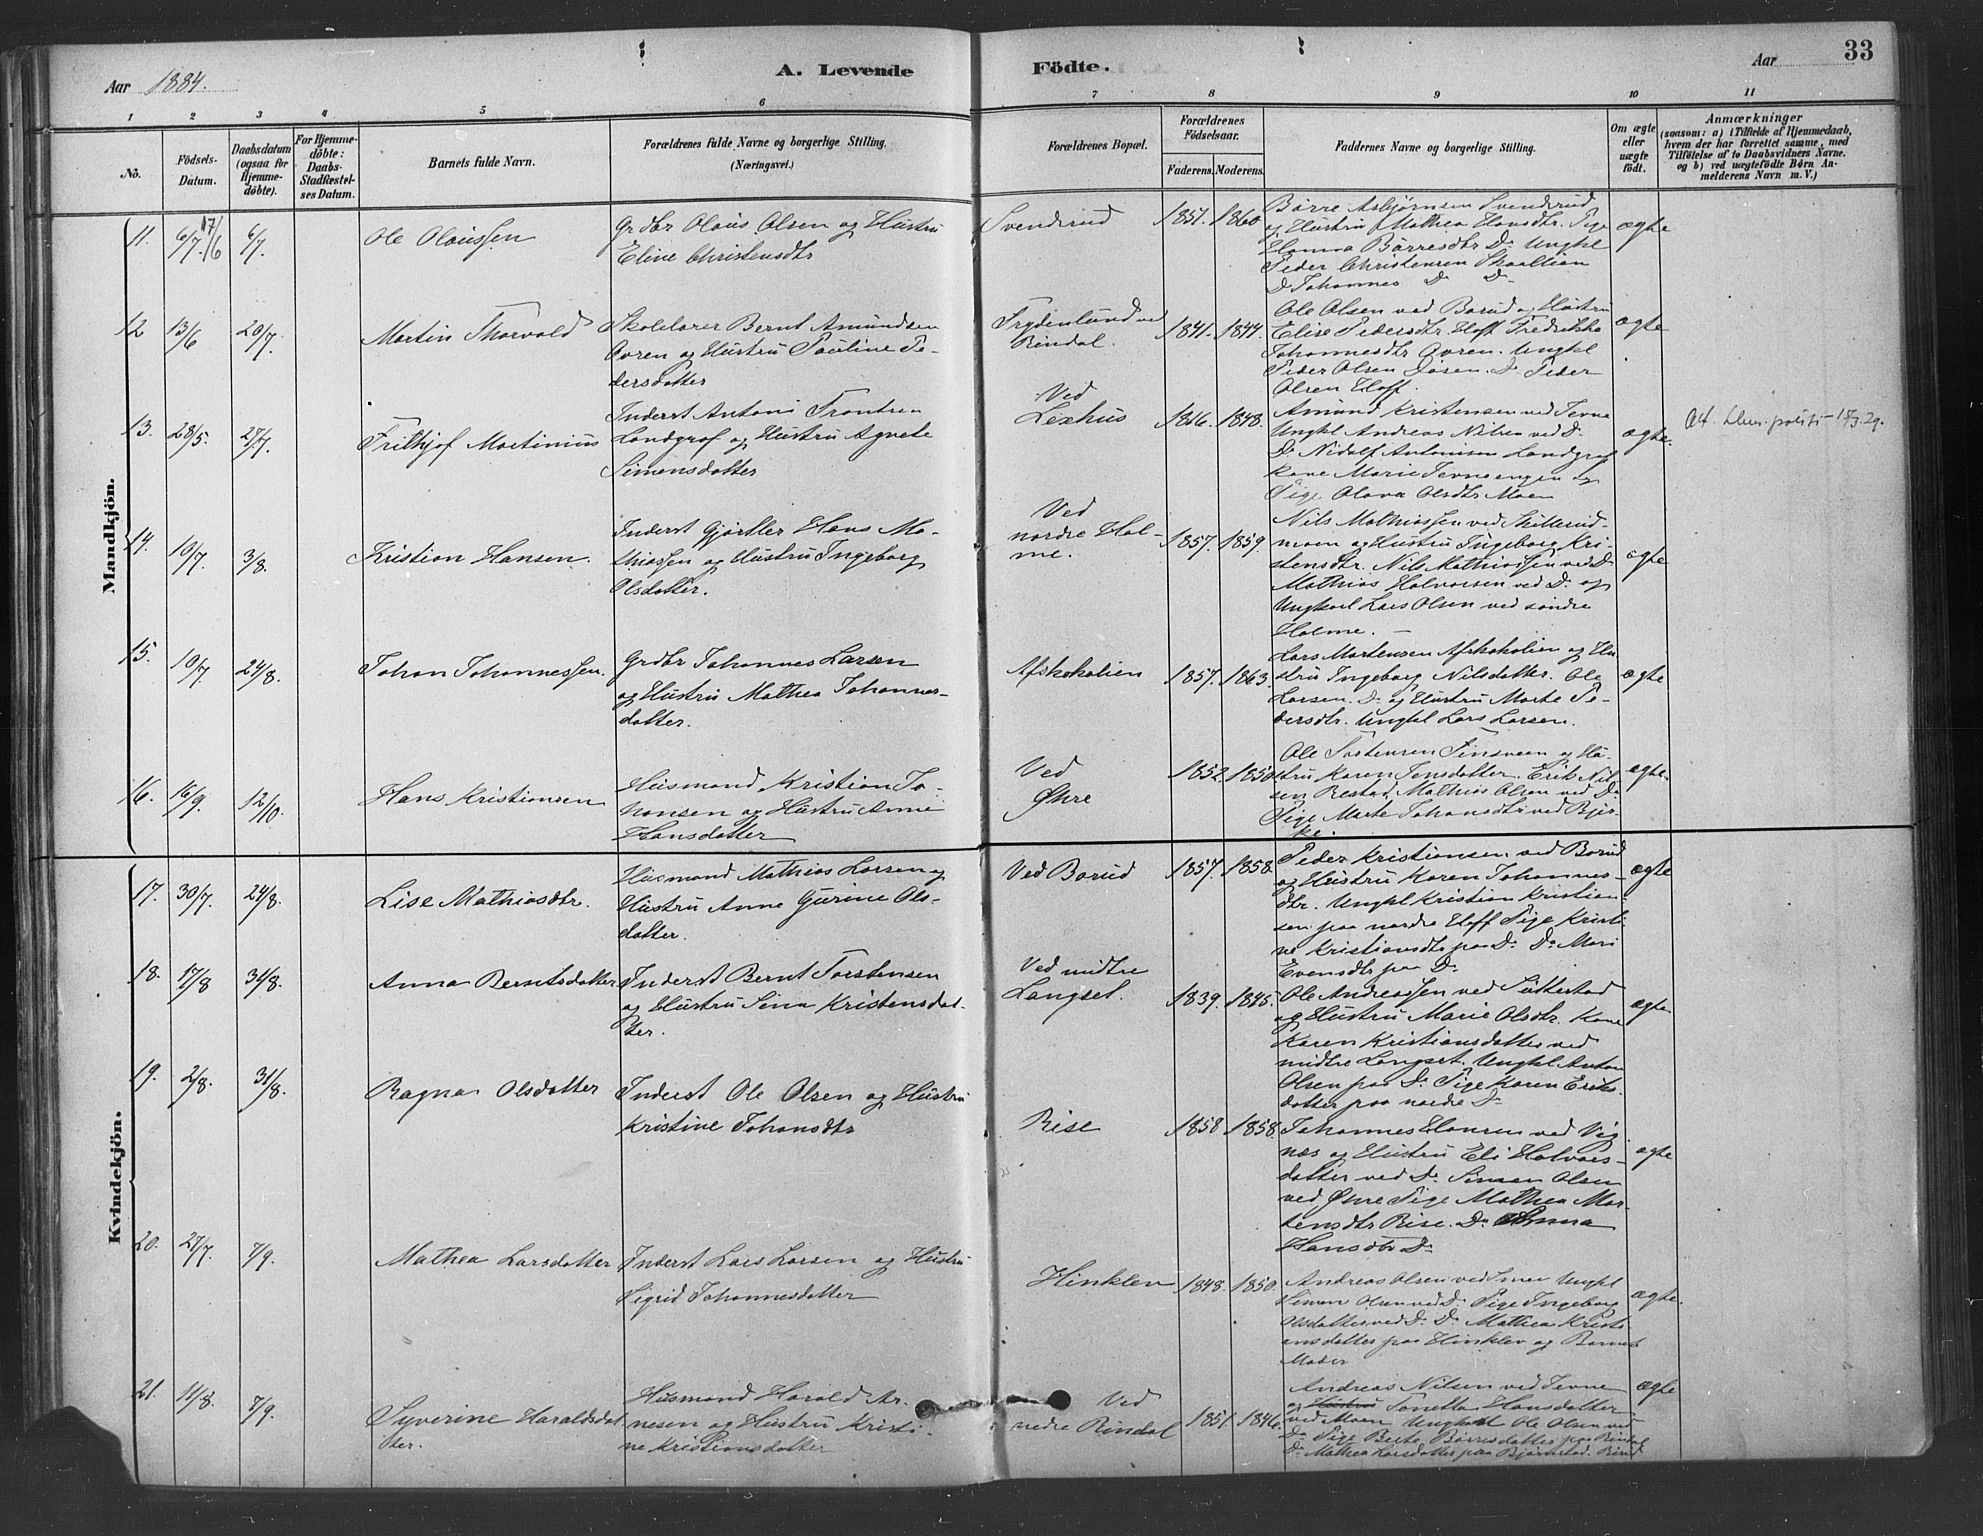 33
Aar 1884.
A. Levende Födte.
Aar
1 2 3 4 5 6 7 8 9 10 11
No.
Födsels-Datum.
Daabsdatum (ogsaa for Hjemmedöbte).
For Hjemmedöbte: Daabs-Stadfæstelses Datum.
Barnets fulde Navn.
Forældrenes fulde Navne og borgerlige Stilling. (Næringsvei.)
Forældrenes Bopæl.
Forældrenes Födselsaar.
Faderens. Moderens.
Faddernes Navne og borgerlige Stilling.
Om ægte eller uægte födt.
Anmærkninger
(saasom: a) i Tilfælde af Hjemmedaab,
hvem der har forrettet samme, med
Tilföielse af to Daabsvidners Navne.
og b) ved uægtefödte Börn Anmelderens Navn m. V.)
Mandkjön.
11. 6/7 17/6 6/7. Ole Olaussen
Grdbr Olaus Olsen og Hustru
Eline Christensdtr
Svenderud 1851. 1860
Börre Asbjörnsen Svenderud
og Hustru Mathea Hansdtr. Pige
Hanna Börresdtr Do Ungkl
Peder Christensen
Do Johannes Do Do
ægte
12 13/6 20/7. Martin Thorvald
Skolelærer Bernt Amundsen
Ovren og Hustru Pauline Pe-
dersdatter
Frydenlund ved
Rindal. 1841. 1844.
Ole Olsen ved Borud og Hustru
Elise Pedersdtr Hoff Fredrikke
Johannesdtr Ovren. Ungkl
Peder Olsen Do Peder
Olsen Hoff.
ægte
13. 28/5. 27/7. Frithjof Martinius
Inderst Anton Frontsen
Landgraf og Hustru Agnete
Simensdatter
Ved
Lexhus 1846. 1848.
Amund Kristensen ved Tevne
Ungkl Andreas Nilsen ved Do
Do Nidolf Antonisen Landgraf
kone Marie Tevneengen og
Pige Olava Olsdtr Moen
ægte.
14. 10/7. 3/8. Kristian Hansen.
Inderst Gjørtler Hans Ma-
thiassen og Hustru Ingeborg
Olsdatter.
Ved
nordre Hol-
me. 1857. 1859.
Nils Mathiassen ved
moen og Hustru Ingeborg Kri-
stensdtr. Nils Mathiassen ved Do
Mathias Halvorsen ved Do og
Ungkarl Lars Olsen ved söndre
Holme. –
ægte
15. 10/7. 24/8. Johan Johannessen.
Grdbr Johannes Larsen
og Hustru Mathea Johannes-
datter.
Afskokalien 1857. 1863.
Lars Martensen Afskokalien og Hu-
stru Ingeborg Nilsdatter. Ole
Larsen. Do og Hustru Marte Pe-
dersdtr. Ungkl Lars Larsen.
ægte
16. 16/9. 12/10. Hans Kristiansen
Husmand Kristian Jo-
hansen og Hustru Anne
Hansdatter
Ved
Øvre 1852. 1850.
Ole Torstensen Finsveen og Hu-
stru Karen Jensdatter. Erik Nil-
sen Restad. Mathias Olsen ved Do
Pige Marte Johansdtr ved Bjer-
ke.
ægte.
Kvindekjön.
17. 30/7. 24/8. Lise Mathiasdtr.
Husmand Mathias Larsen og
Hustru Anne Gurine Ols-
datter.
Ved Borud 1857. 1858.
Peder Kristiansen ved Borud
og Hustru Karen Johannes-
dtr. Ungkl Kristian Kristian-
sen paa nordre Hoff Pige Kristi-
ne Kristiansdtr paa Do Do Mari
Evensdtr paa Do
ægte
18. 17/8 31/8. Anna Berntsdatter
Inderst Bernt Torstensen
og Hustru Sina Kristensdat-
ter.
Ved midtre
Langset. 1839. 1845.
Ole Andreassen ved Sattestad
og Hustru Marie Olsdtr. Kone
Karen Kristiansdatter ved
midtre Langset. Ungkl Anton
Olsen paa Do Pige Karen Eriks-
datter paa nordre Do
ægte
19. 2/8. 31/8. Ragna Olsdatter
Inderst Ole Olsen og Hustru
Kristine Johansdtr
Rise 1858 1858.
Johannes Hansen ved Vig-
næs og Hustru Eli Halvors-
datter ved Do Simen Olsen
ved Øvre Pige Mathea Mar-
tensdtr Rise. Do Anna
Hansdtr Do
ægte
20. 27/7. 7/9. Mathea Larsdatter
Inderst Lars Larsen og Hustru
Sigrid Johannesdatter
Hinklev 1848. 1850.
Andreas Olsen ved Ungkl
Simon Olsen ved Do Pige Ingeborg
Olsdatter ved Do Do Mathea Kristi-
ansdatter paa Hinklev og Barnets
Moder
ægte.
21. 11/8. 7/9. Syverine Haraldsdat-
ter.
Husmand Harald Ar-
nesen og Hustru Kristi-
ne Kristiansdatter
Ved
nedre Rindal 1851. 1846.
Andreas Nilsen ved Tevne
og Hustru Tonetta Hansdatter
ved Moen Ungkarl Ole Olsen ved
Do Pige Berte Børresdatter paa Rindal
Do Mathea Larsdatter paa Bjørnstad.
ægte